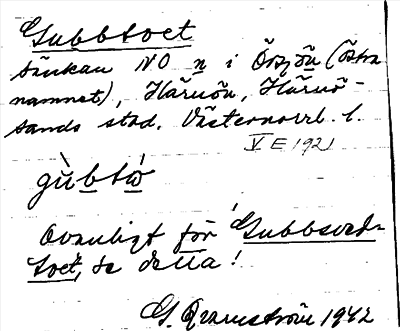 Gubbtvet
tänkan NO n i Örsjön (östra
namnet), Härnön, Härnö-
sands stad. Västernorrl. l.
V E 1921
gùbtẁ
Ovanligt för Gubbsved-
tvet, se detta!
G. 1942